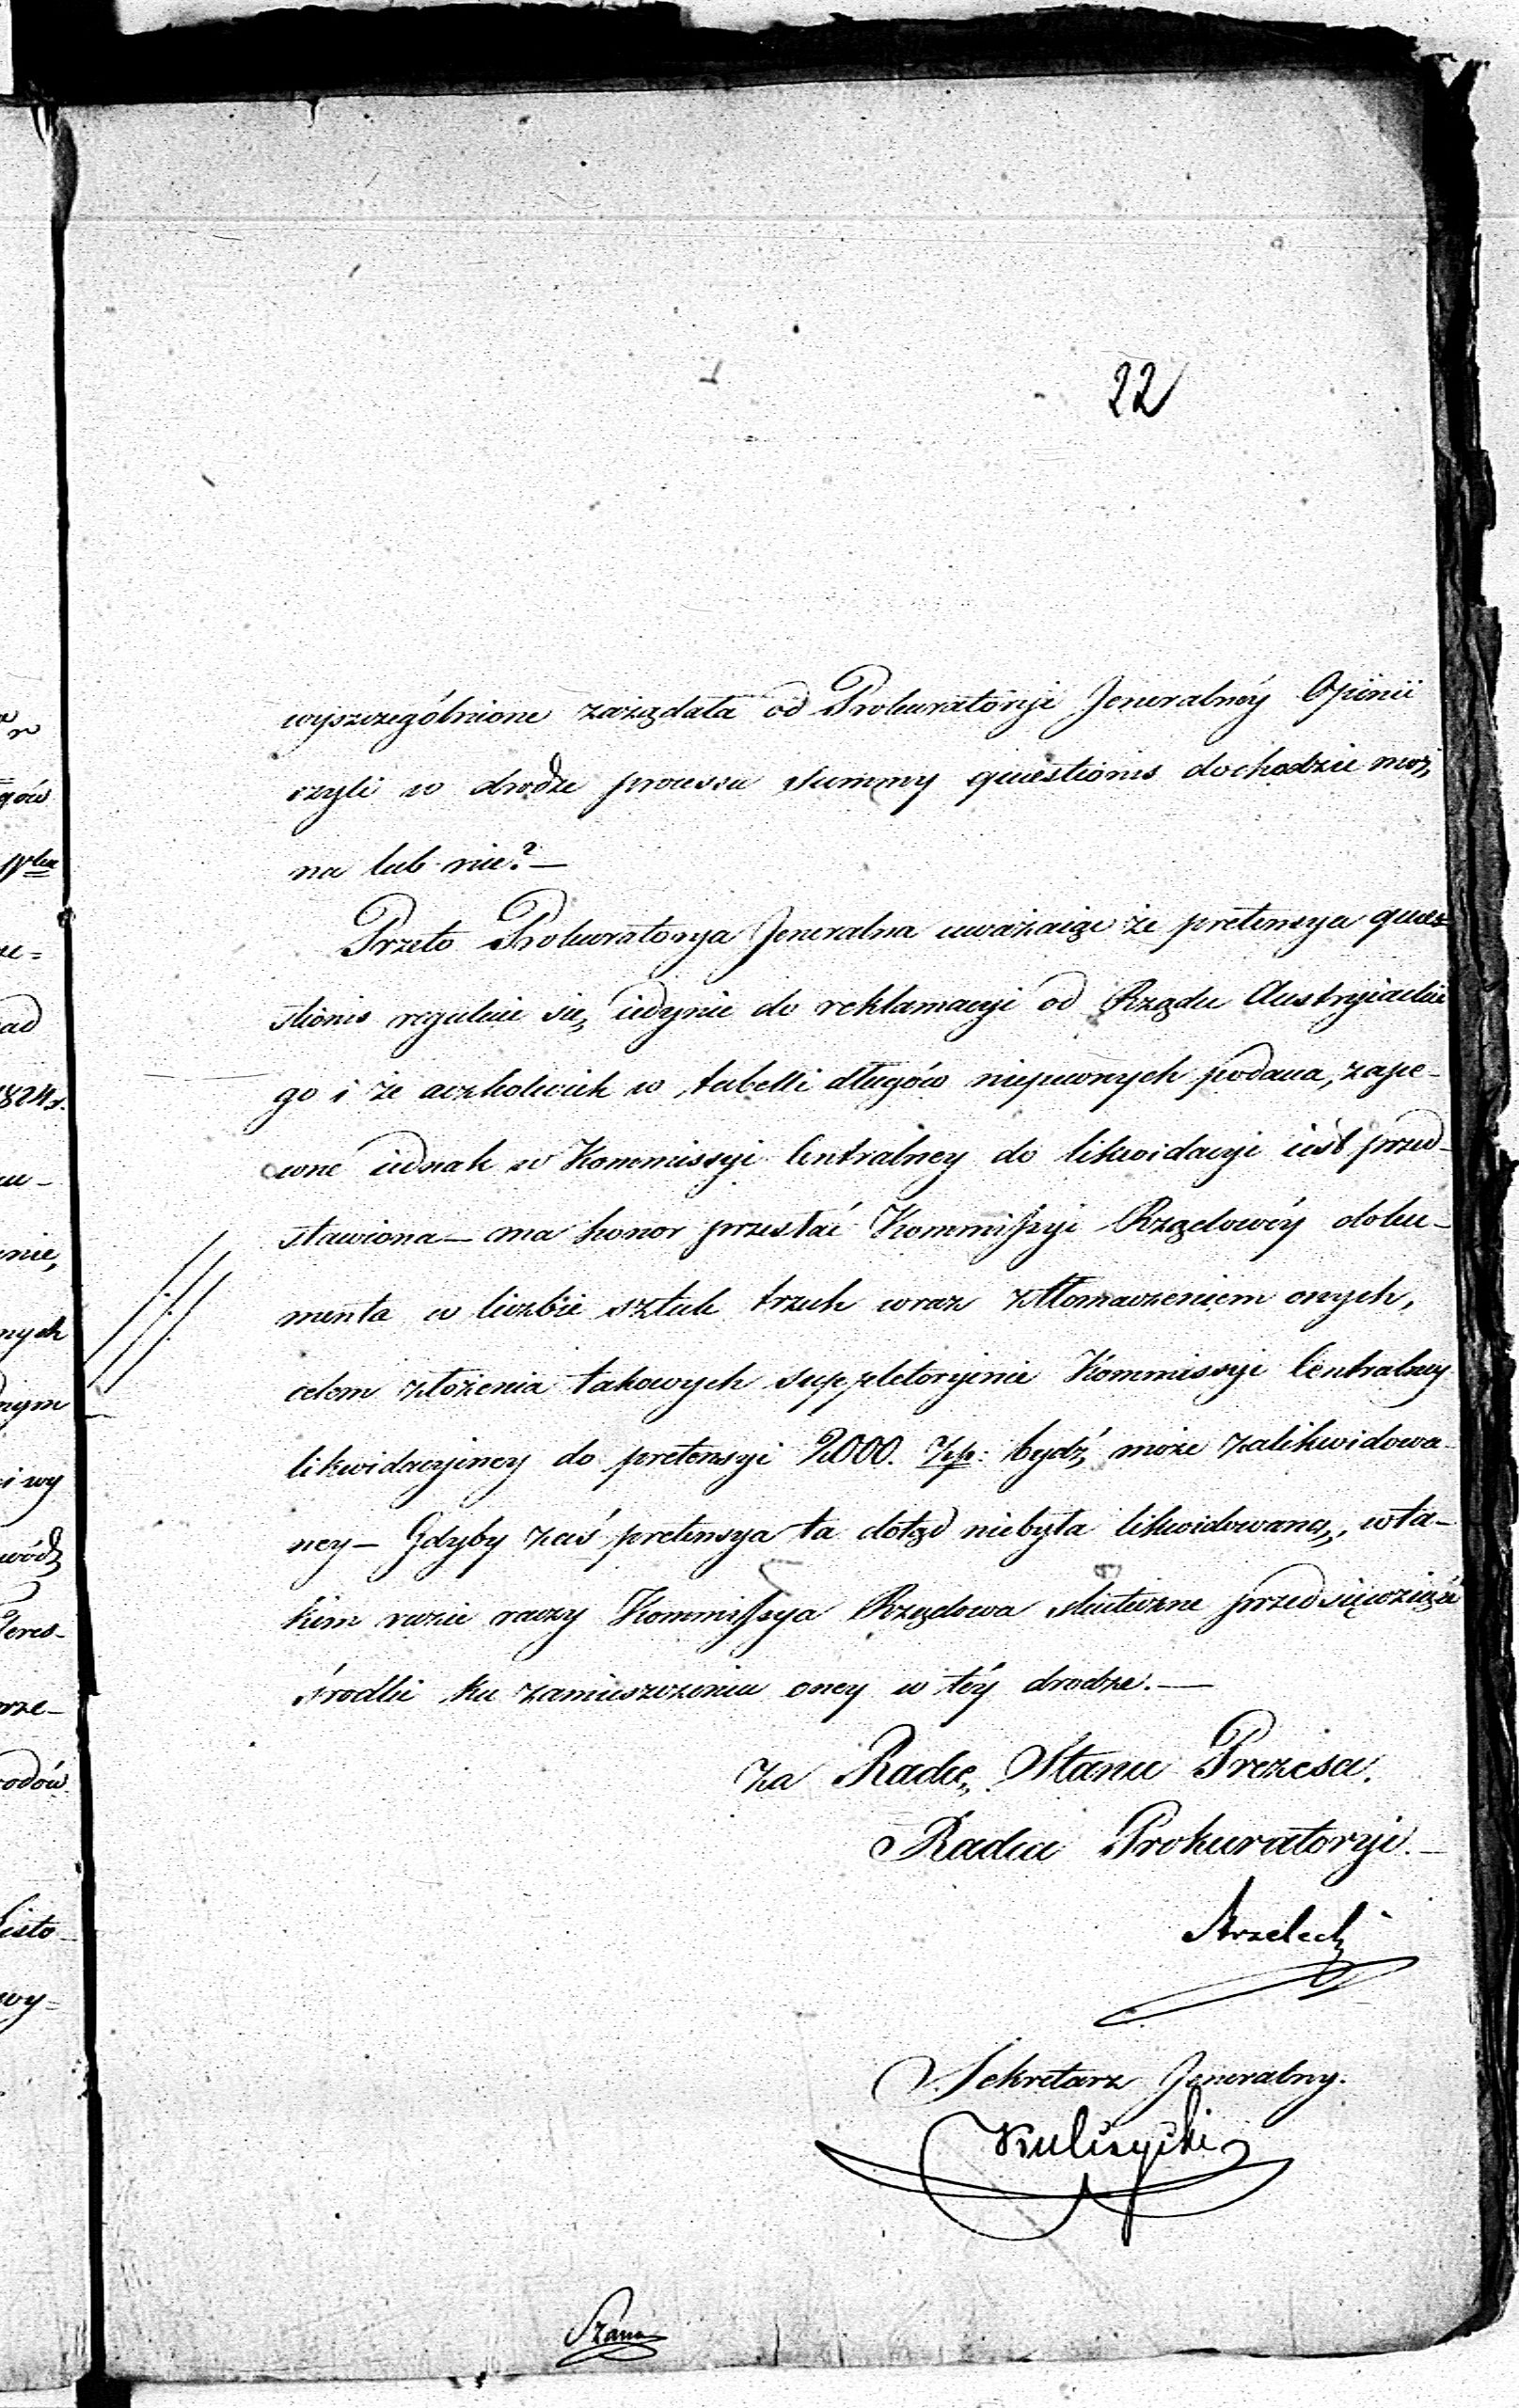 22
wyszczególnione zażądała od Prokuratoryi Jeneralnéy Opinii
czyli w drodze processu Summy quaestionis dochodzić moż,
na lub nie? —
Przeto Prokuratorya Jeneralna uważaiąc że pretensya quae-
stionis reguluie się, iedynie do reklamacyi od Rządu Austryiackie
go i że aczkolwiek w tabelli długów niepewnych podana, zape-
wne iednak w Kommissyi Centralney do likwidacyi iest przed-
stawiona — ma honor przesłać Kommissyi Rządowéy doku-
menta w liczbie sztuk trzech wraz z tłomaczeniem onych,
celem złożenia takowych suppletoryinie Kommissyi Centralney
likwidacyiney do pretensyi 2000. Złp: bydź, może zalikwidowa-
ney — Gdyby zaś pretensya ta dotąd niebyła likwidowaną, w ta-
kim razie raczy Kommissya Rządowa skuteczne przedsięwziąść
środki ku zamieszczeniu oney w téy drodze. —
Za Radcę Stanu Prezesa.
Radca Prokuratoryi. —
Strzelecki
Sekretarz Jeneralny.
gów
ad
1824 r.
nie,
nych
i wy
wódz
rze-
odów
wy=